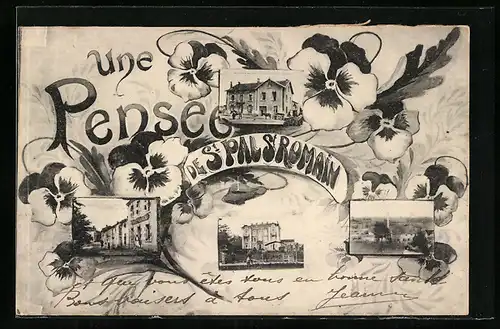 Une
Pensée
DE St PAL St ROMAIN
et que vous êtes tous en bonne santé
Bons baisers à tous Jeanne